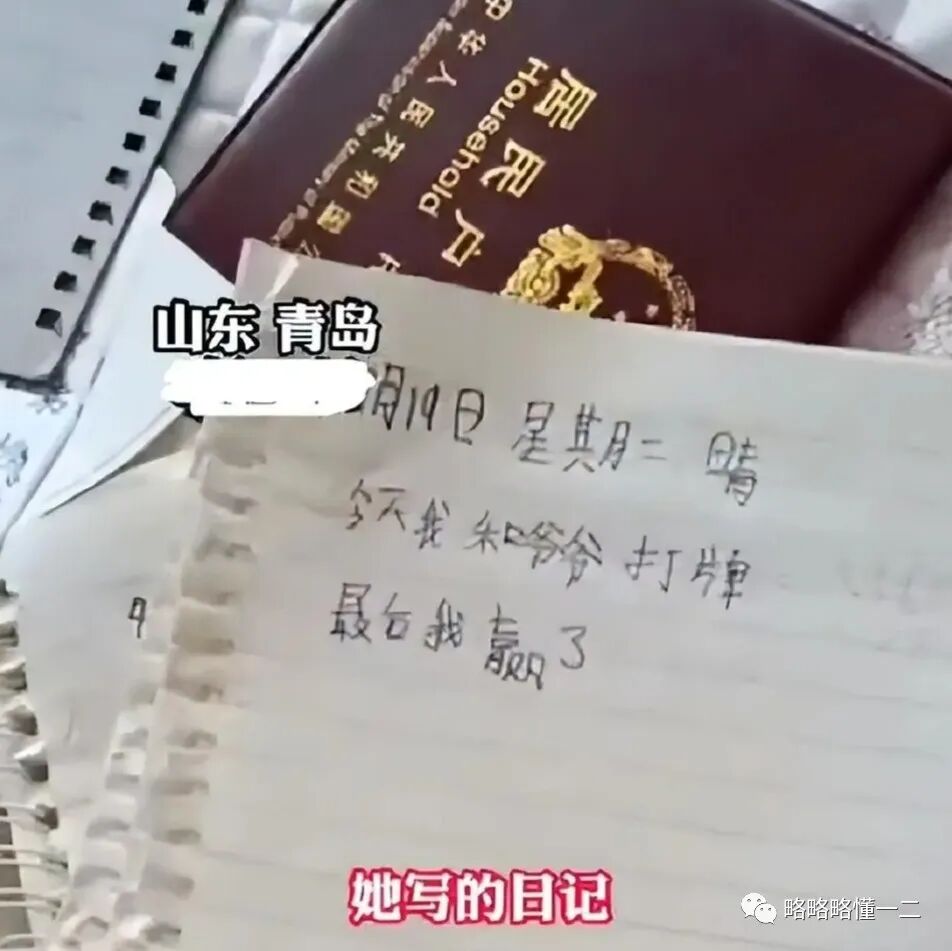 中华人民共和国
居民户
Household
山东 青岛
月19日 星期二 晴
今天我和爷爷打牌
最后我赢了
月
她写的日记
略略略懂一二